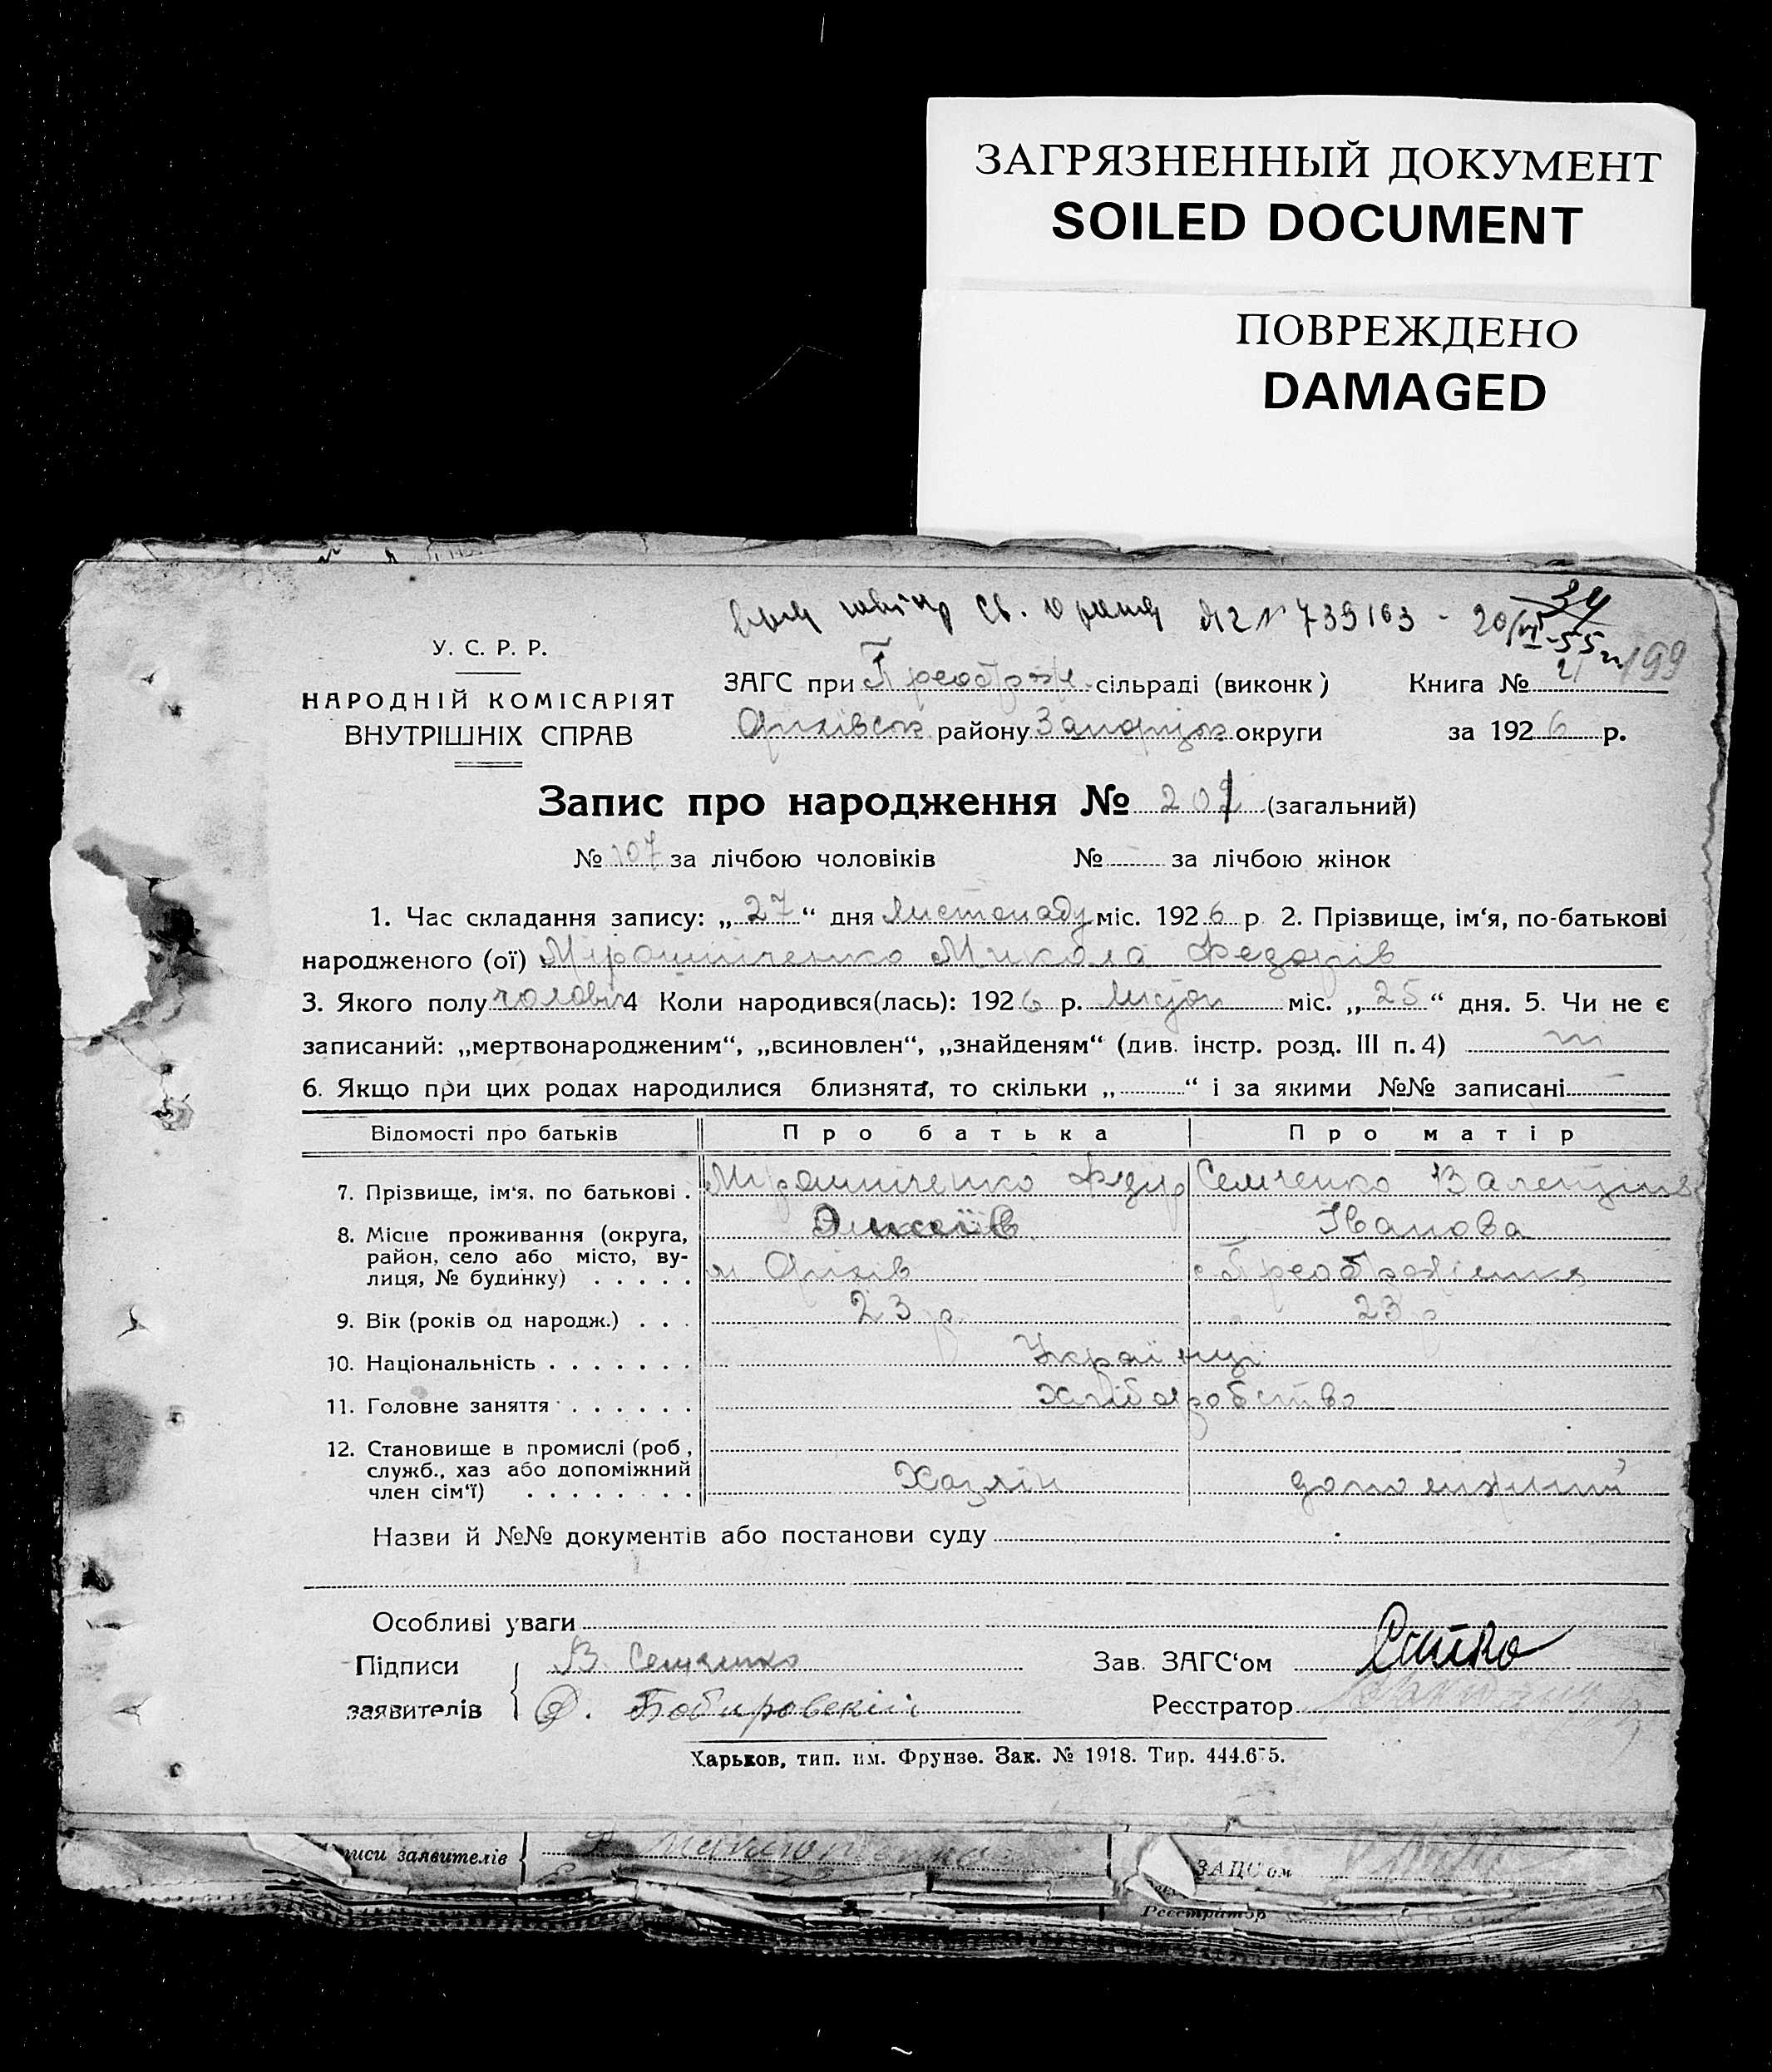 ЗАГРЯЗНЕННЫЙ ДОКУМЕНТ
SOILED DOCUMENT
ПОВРЕЖДЕНО
DAMAGED
34
№ 739163 - 20/VI-55
199
У. С. Р. Р.
НАРОДНІЙ КОМІСАРІЯТ
ВНУТРІШНІХ СПРАВ
ЗАГС при Преображ. сільраді (виконк) Книга № 21
Оріхівськ району Запоріжж округи за 1926 р.
Запис про народження № 201 (загальний)
№ 107 за лічбою чоловіків № - за лічбою жінок
1. Час складання запису: „27“ дня Листопаду міс. 1926 р 2. Прізвище, ім‘я, по-батькові
народженого (ої) Мірошніченко Микола Федорів
3. Якого полу чоловіч 4 Коли народився(лась): 1926 р. Листоп міс. „25“ дня. 5. Чи не є
записаний: „мертвонародженим“, „всиновлен“, „знайденям“ (див. інстр. розд. III п. 4) ні
6. Якщо при цих родах народилися близнята, то скільки „.....“ і за якими №№ записані
Відомості про батьків Про батька Про матір
7. Прізвище, ім‘я, по батькові . Мірошніченко Федір Семченко Валентина
Іванова
8. Місце проживання (округа,
район, село або місто, ву-
лиця, № будинку) . . . . . м Оріхів с Преображенка
9. Вік (років од народж.) . . . 23 р. 23 р
10. Національність . . . . . . . Українці
11. Головне заняття . . . . . . Хліборобство
12. Становище в промислі (роб,
служб., хаз або допоміжний
член сім‘ї) . . . . . . . . Хазяїн допоміжний
Назви й №№ документів або постанови суду
Особливі уваги
Підписи В. Семченко Зав. ЗАГС‘ом
заявителів Бобировский Реєстратор
Харьков, тип. им. Фрунзе. Зак. № 1918. Тир. 444.675.
писи заявителів ЗАЦС'ом
Реєстратор